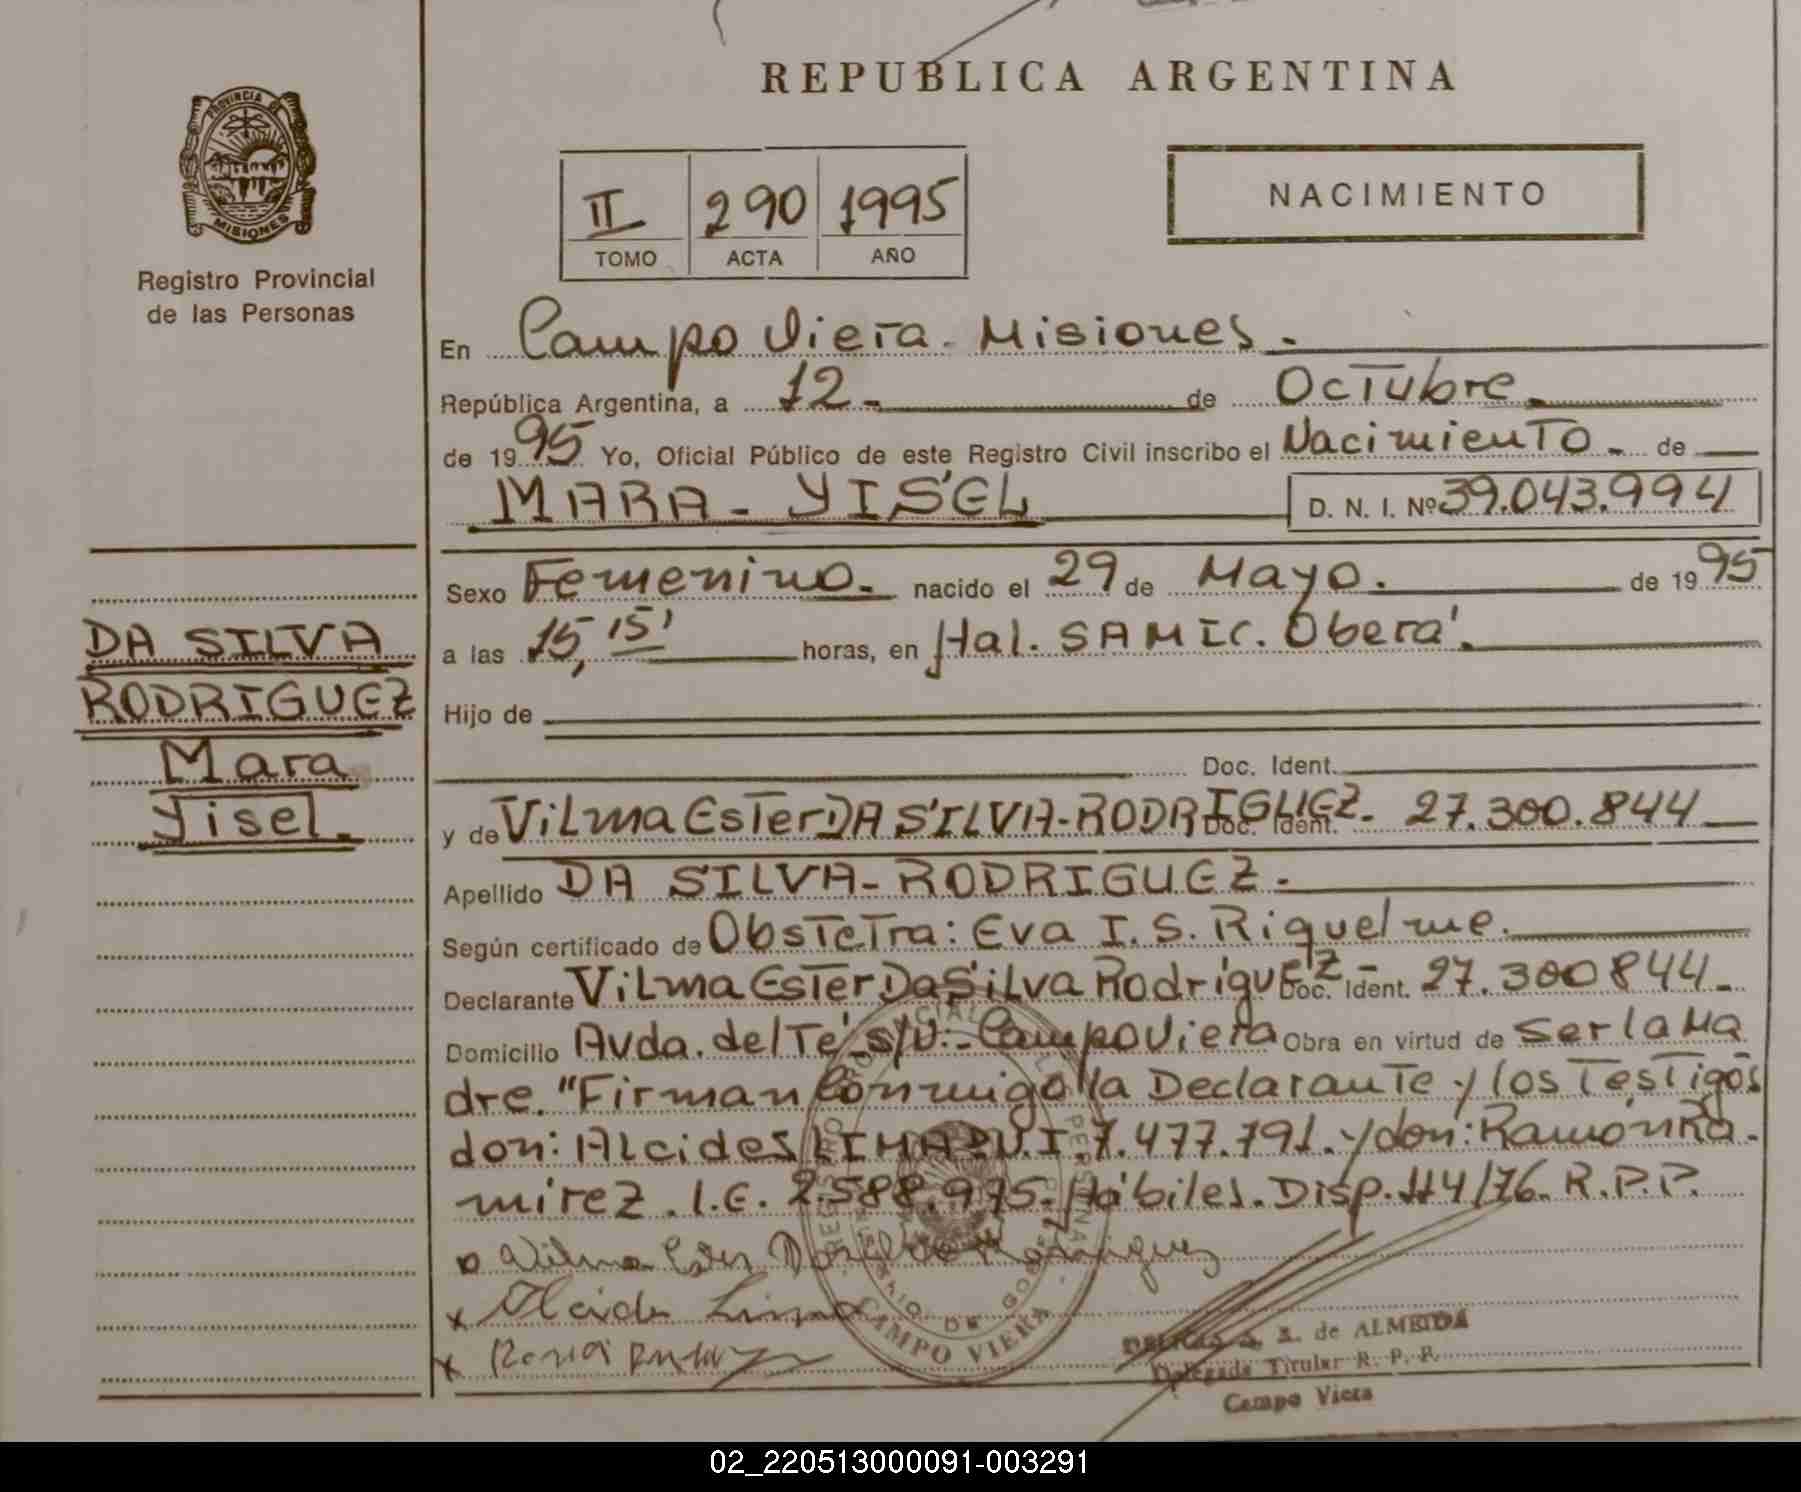 REPUBLICA ARGENTINA
PROVINCIA DE
MISIONES
Registro Provincial
de las Personas
II 290 1995
TOMO ACTA AÑO
NACIMIENTO
En Campo Viera - Misiones.
República Argentina, a 12 - de Octubre
de 1995 Yo, Oficial Público de este Registro Civil inscribo el Nacimiento - de
MARA - YISEL D. N. I. Nº 39.043.994
Sexo Femenino. nacido el 29 de Mayo. de 1995
a las 15,15' horas, en Hal. SAMIC. Oberá.
Hijo de
Doc. Ident.
y de Vilma Ester DA SILVA-RODRIGUEZ. Doc. Ident. 27.300.844
Apellido DA SILVA - RODRIGUEZ.
Según certificado de Obstetra: Eva I. S. Riquelme.
Declarante Vilma Ester Da Silva Rodríguez - Doc. Ident. 27.300844-
Domicilio Avda. del Té s/n:- Campo Viera Obra en virtud de ser la Ma
dre. "Firman Conmigo la Declarante y los Testigos
don: Alcides LIMA D.N.I. 7.477.791. y don: Ramón Ra-
mirez. L.E. 2.588.975. Hábiles. Disp. 114/76. R.P.P.
DA SILVA
RODRIGUEZ
Mara
Yisel.
Vilma Ester Da Silva Rodriguez
x Alcide Lima
x
CAMPO VIERA
de ALMEIDA
Delegada Titular R. P. P.
Campo Viera
02_220513000091-003291